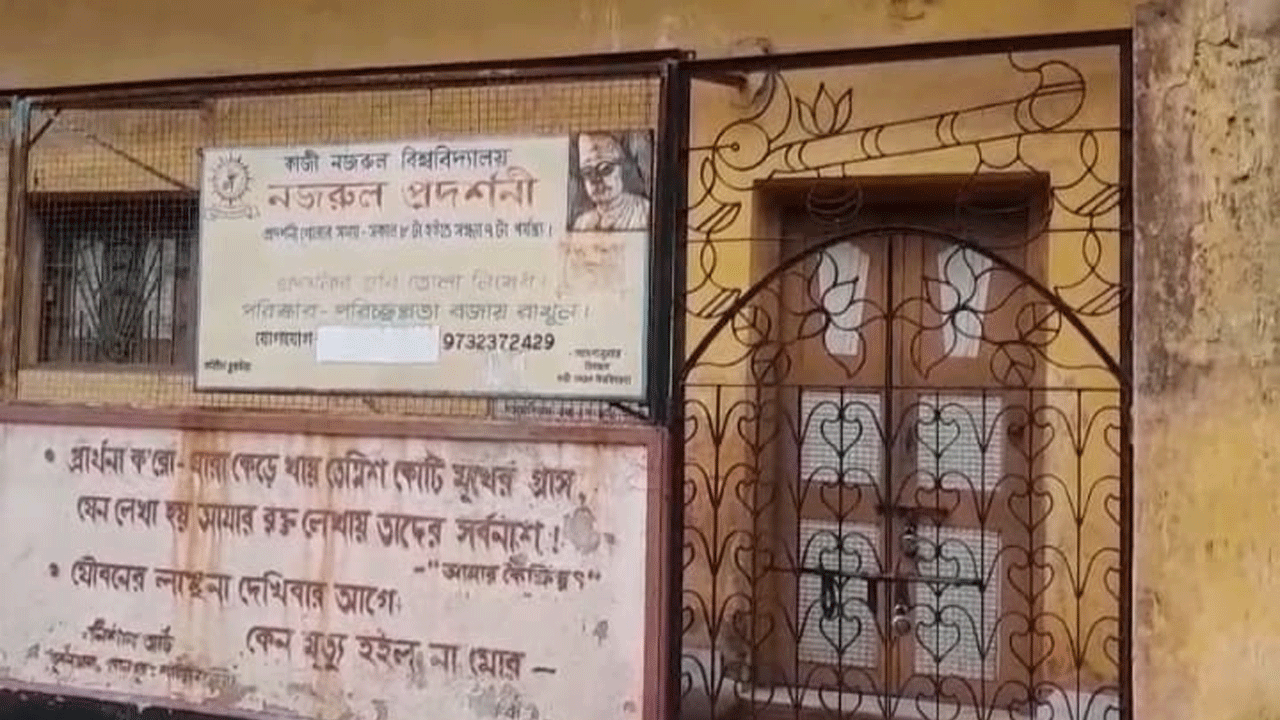 কাজী নজরুল বিশ্ববিদ্যালয়
নজরুল প্রদর্শনী
প্রদর্শনী খোলার সময় - সকাল ৮ টা হইতে সন্ধ্যা ৭ টা পর্যন্ত।
তোলা নিষেধ।
পরিষ্কার- পরিচ্ছন্নতা বজায় রাখুন।
যোগাযোগ- 9732372429
• প্রার্থনা ক'রো- যারা কেড়ে খায় তেত্রিশ কোটি মুখের গ্রাস,
যেন লেখা হয় আমার রক্ত লেখায় তাদের সর্বনাশ!
-"আমার কৈফিয়ৎ"
• যৌবনের লাঞ্ছনা দেখিবার আগে
কেন মৃত্যু হইল না মোর —